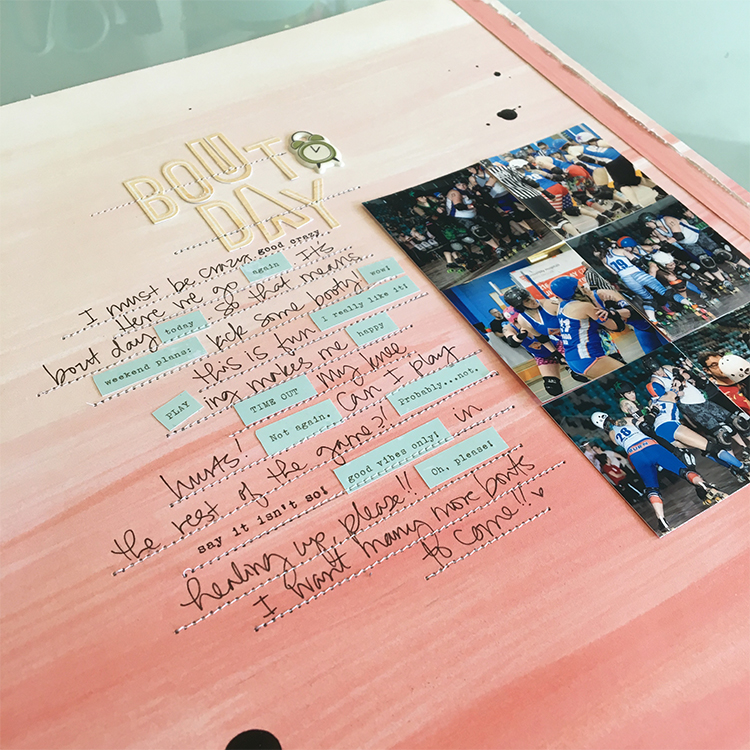 BOUT
DAY
I must be crazy, good crazy
Here we go again It's
bout day today so that means wow!
weekend plans: kick some booty I really like it!
this is fun happy
PLAY ing makes me
TIME OUT My knee
hurts! Not again. Can I play
the rest of the game?! Probably...not.
say it isn't so! good vibes only! in
healing up, please!! Oh, please!
I want many more bouts
to come!! ♡
28